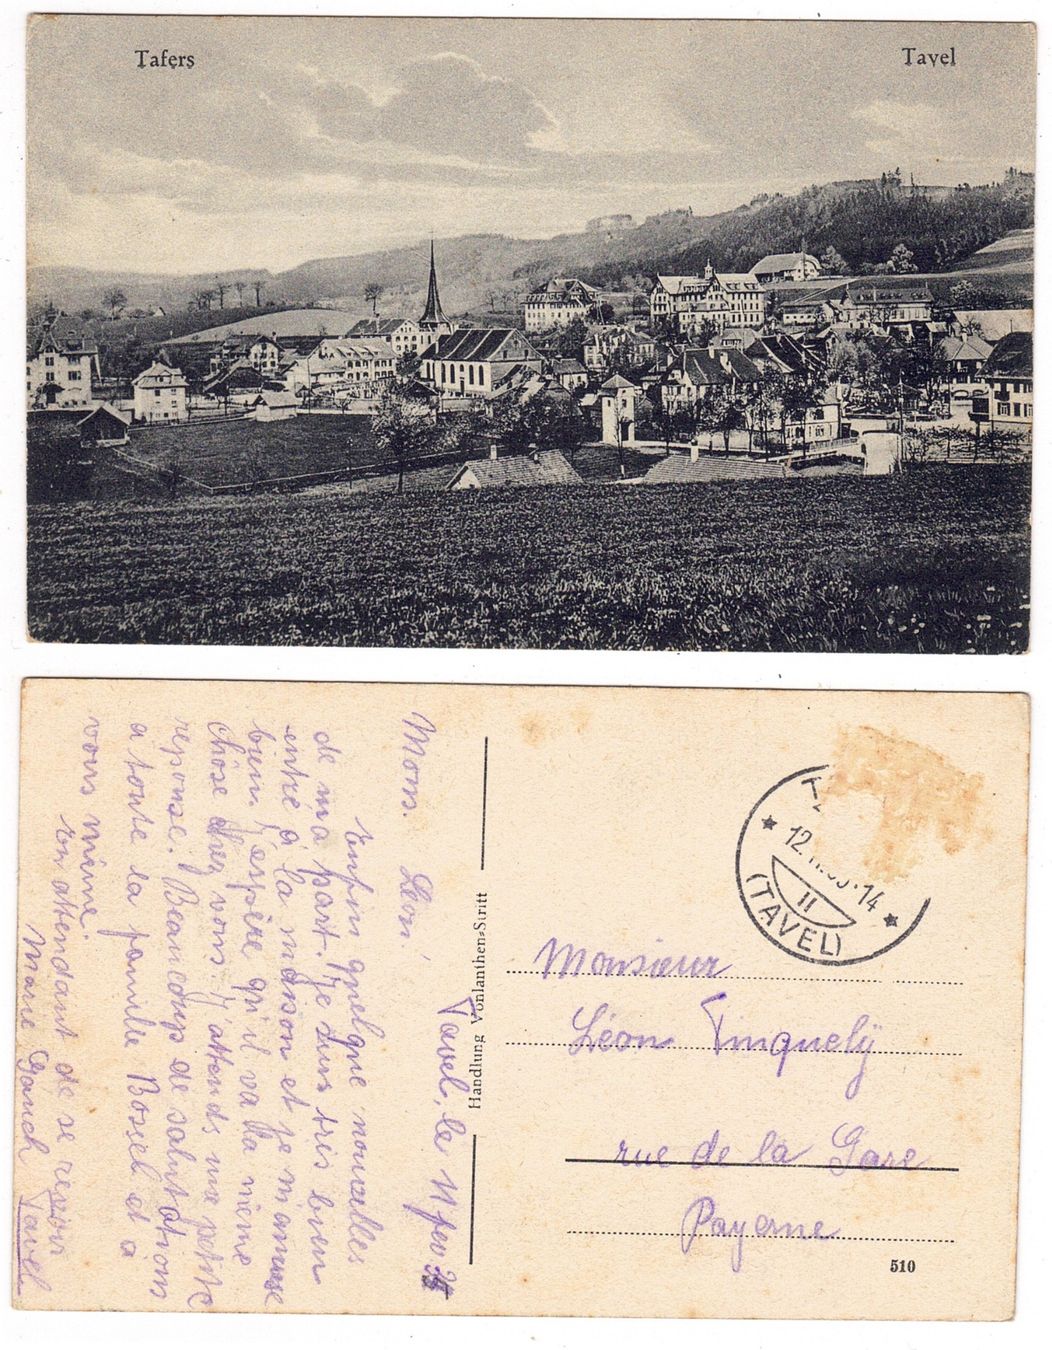 Tafers
Tavel
Tavel, le 11 fev
Mons. Léon.
Enfin quelque nouvelles
de ma part. Je suis très bien
entré à la maison et je m'amuse
bien. J'espère qu'il va la même
chose chez vous. J'attends une petite
reponse. Beaucoup de salutations
à toute la famille et à
vous même.
En attendant de se revoir
Marie Tavel
Handlung Vonlanthen-Stritt
12. 14
II
(TAVEL)
Monsieur
Léon Tinquely
rue de la Gare
Payerne
510